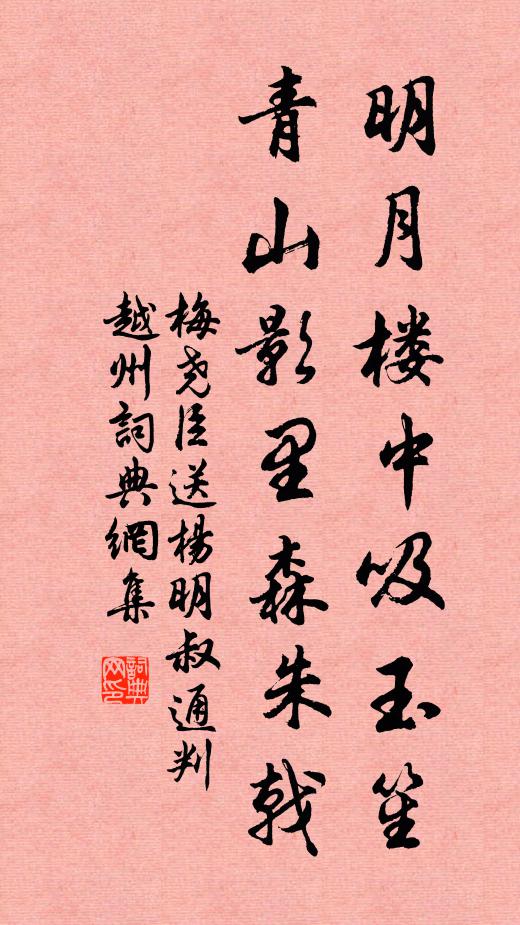 明月楼中吸玉笙
青山影里森朱戟
梅尧臣送楊明叔通判
越州詞典網集
詞典网印